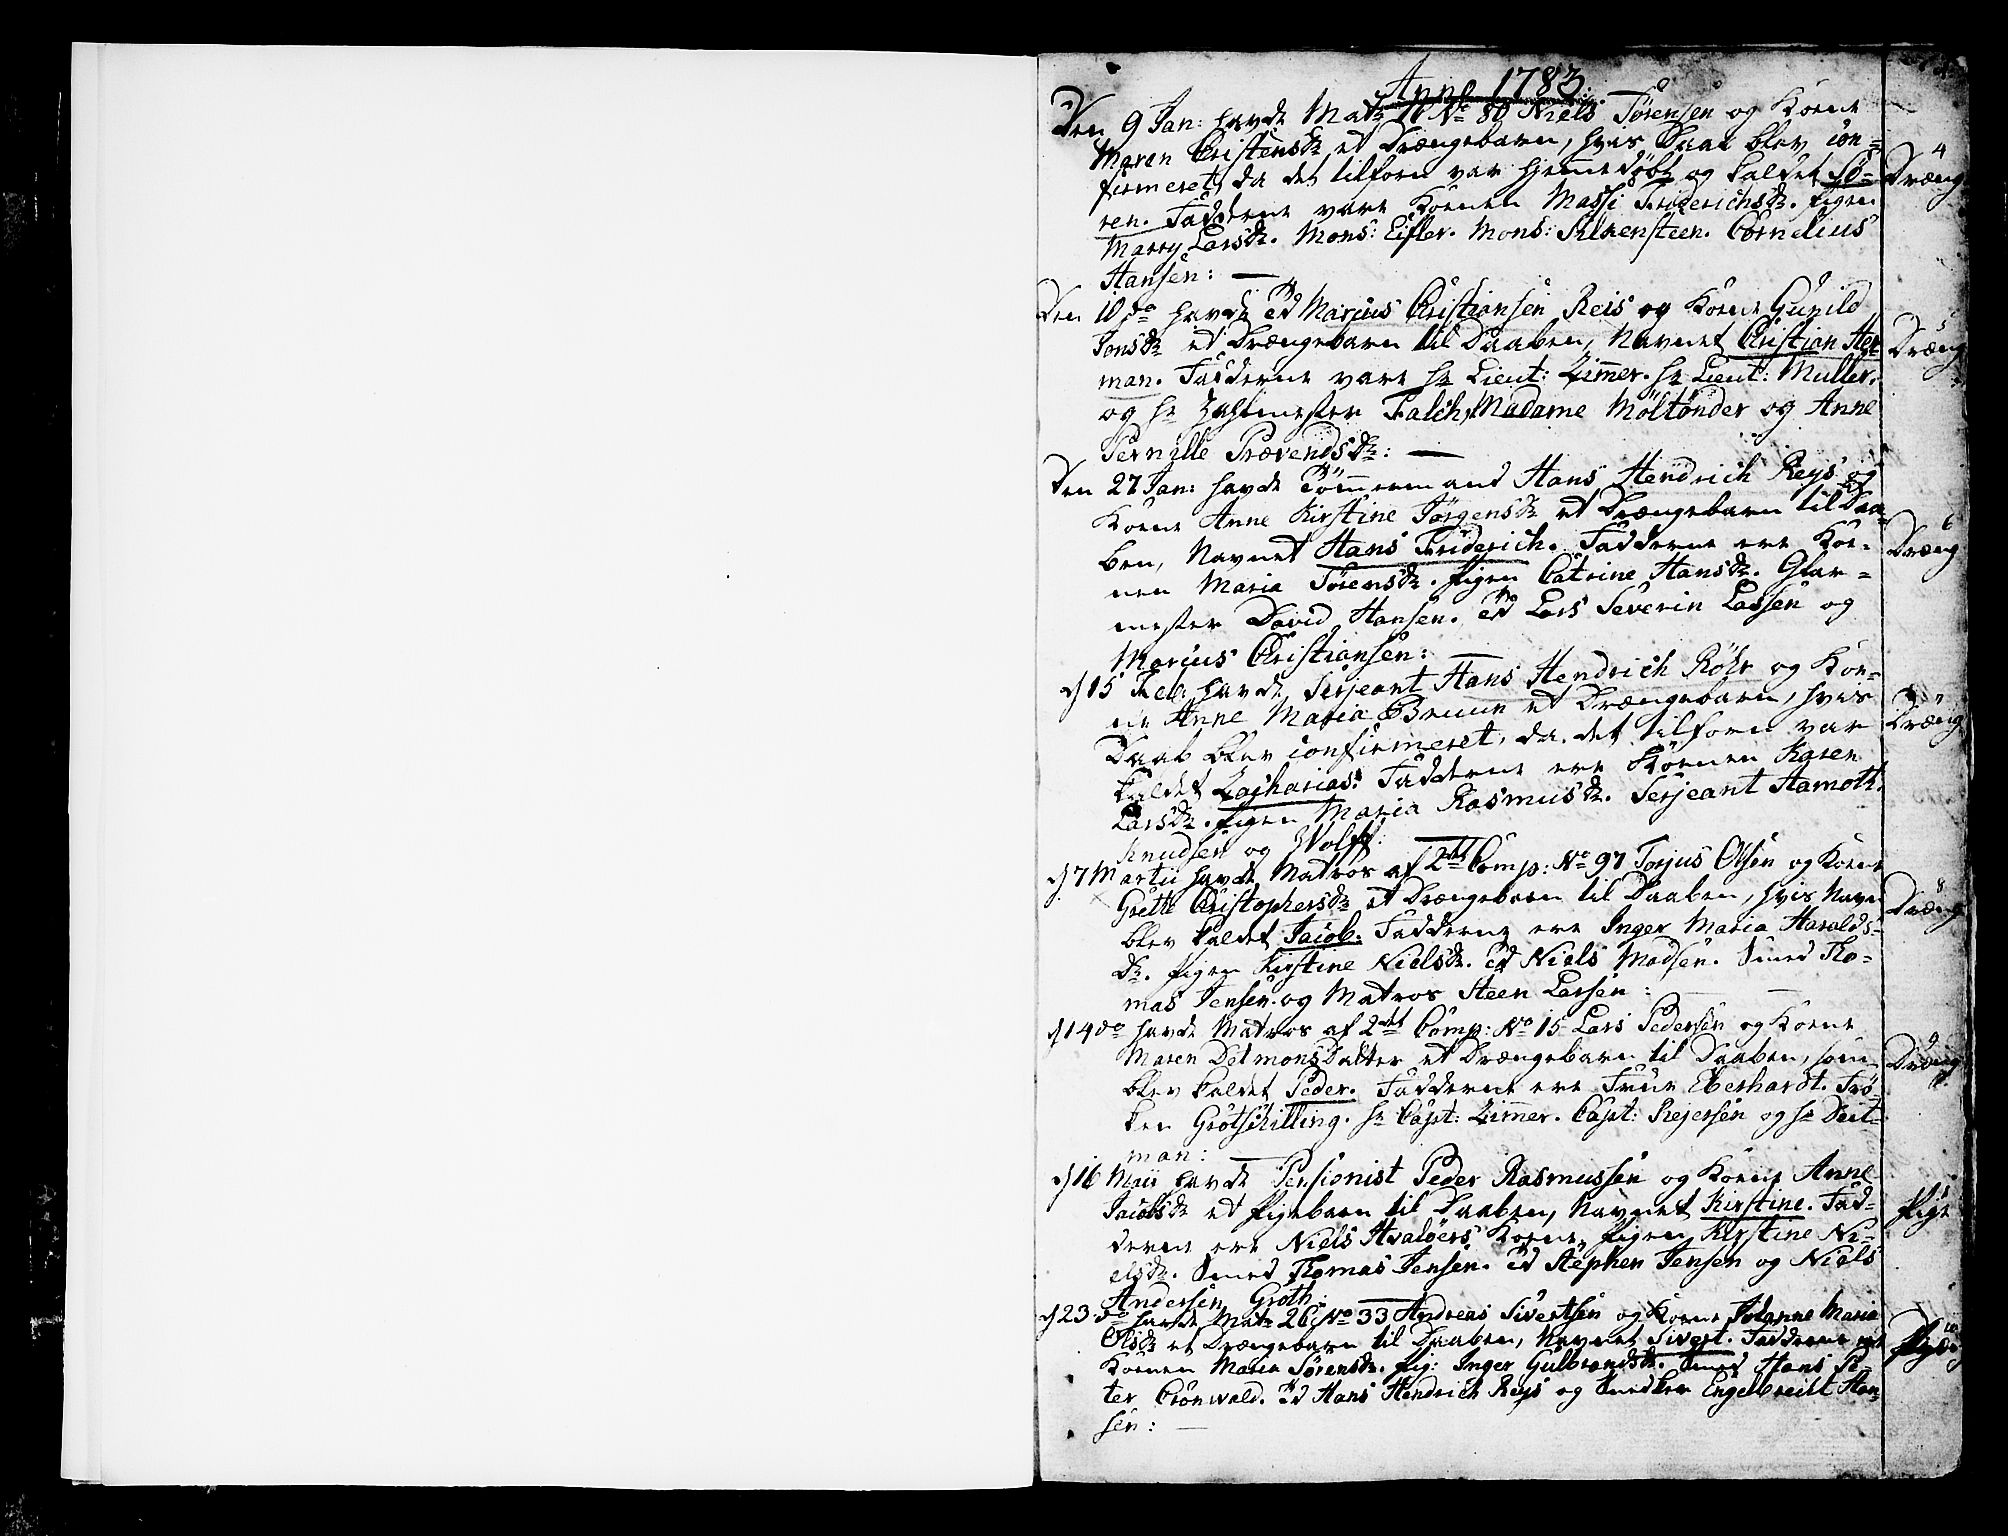 Anno 1783.
Den 9 Jan: havde Matr: 1 C No 80 Niels Sørensen og Kone
Maren Christensdr et Drængebarn, hvis Daab blev con-
firmeret, da det tilforn var hjemmedøbt og kaldet Sö-
ren. Fadderne vare Konen Massi Friderichsdr. Pigen
Marry Larsdr. Mons: Eisler. Mons: Silkensteen. Cornelius
Hansen: —
4
Dræng
Den 10 do havde Marcus Christiansen Reis og Kone Gunild
Jonsdr et Drængebarn til Daaben, Navnet Christian Her-
man. Fadderne vare Hr Lieut: Zimer. Hr Lieut: Muller.
og Hr Zahlmester Falch, Madame Möltönder og Anne
Pernille Prævendsdr: —
5
Dræng
Den 27 Jan: havde Tömermand Hans Hendrich Reys og
Kone Anne Kirstine Jörgensdr et Drængebarn til Daa-
ben, Navnet Hans Friderich. Fadderne ere Ko-
nen Maria Sörensdr. Pigen Catrine Hansdr. Glar-
mester David Hansen. Lars Severin Lassen og
Marcus Christiansen:
6
Dræng
d 15 Feb: havde Serjeant Hans Hendrich Röhr og Ko-
ne Anne Maria Bruun et Drængebarn, hvis
Daab blev confirmeret, da det tilforn var
kaldet Zacharias. Fadderne ere Konen Karen
Larsdr. Pigen Maria Rasmusdr. Serjeant Aamoth.
Knudsen og Wolff: —
7
Dræng
d 7 Martii havde Matros af 2det Comp: No 97 Torjus Olsen og Kone
Grethe Christophersdr et Drængebarn til Daaben, hvis Navn
blev kaldet Jacob. Fadderne ere Inger Maria Haralds-
dr. Pigen Kirstine Nielsdr. Niels Madsen. Smed Tho-
mas Jensen og Matros Steen Larsen: —
8
Dræng
d 14 do havde Matros af 2det Comp: No 15 Lars Pedersen og Kone
Maren Detmonsdatter et Drængebarn til Daaben, som
blev kaldet Peder. Fadderne ere Frue Eberhardt. Frö-
ken Grotschilling. Hr Capt: Zimer. Capt: Rejersen og Hr Deit-
man:
9
Dræng
d 16 Maii havde Pensionist Peder Rasmussen og Kone Anne
Jacobsdr et Pigebarn til Daaben, Navnet Kirstine. Fad-
derne ere Niels Hvalöers Kone, Pigen Kirstine Ni-
elsdr. Smed Thomas Jensen. Stephen Jensen og Niels
Andersen Groth: —
1
Pige
d 23 do havde Matr: 2 C No 33 Andreas Sivertsen og Kone Johanne Maria
Olsdr et Drængebarn til Daaben, Navnet Sivert. Fadderne ere
Konen Maria Sörensdr. Pig: Inger Gulbrandsdr. Smed Hans Pe-
ter Crönwald. Hans Hendrich Reys og Snedker Engelbrecht Han-
sen: —
10